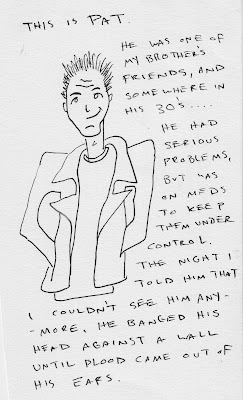 THIS IS PAT.
HE WAS ONE OF
MY BROTHER'S
FRIENDS, AND
SOMEWHERE IN
HIS 30'S....
HE HAD
SERIOUS
PROBLEMS,
BUT WAS
ON MEDS
TO KEEP
THEM UNDER
CONTROL.
THE NIGHT I
TOLD HIM THAT
I COULDN'T SEE HIM ANY-
-MORE, HE BANGED HIS
HEAD AGAINST A WALL
UNTIL BLOOD CAME OUT OF
HIS EARS.